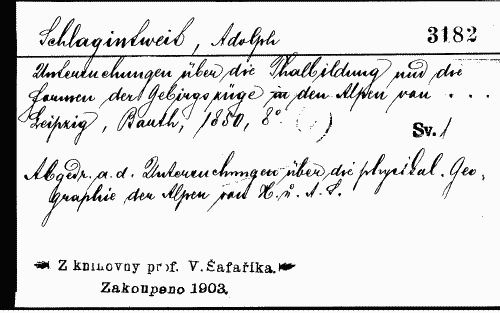 Schlagintweit, Adolph 3182
Untersuchungen über die Thalbildung und die
Formen der Gebirgszüge in den Alpen von ...
Leipzig, Barth, 1850, 8° ( ) Sv. 1
Abgedr. a. d. Untersuchungen über die physikal. Geo-
graphie der Alpen von H. u. A. S.
Z knihovny prof. V. Šafaříka.
Zakoupeno 1903.